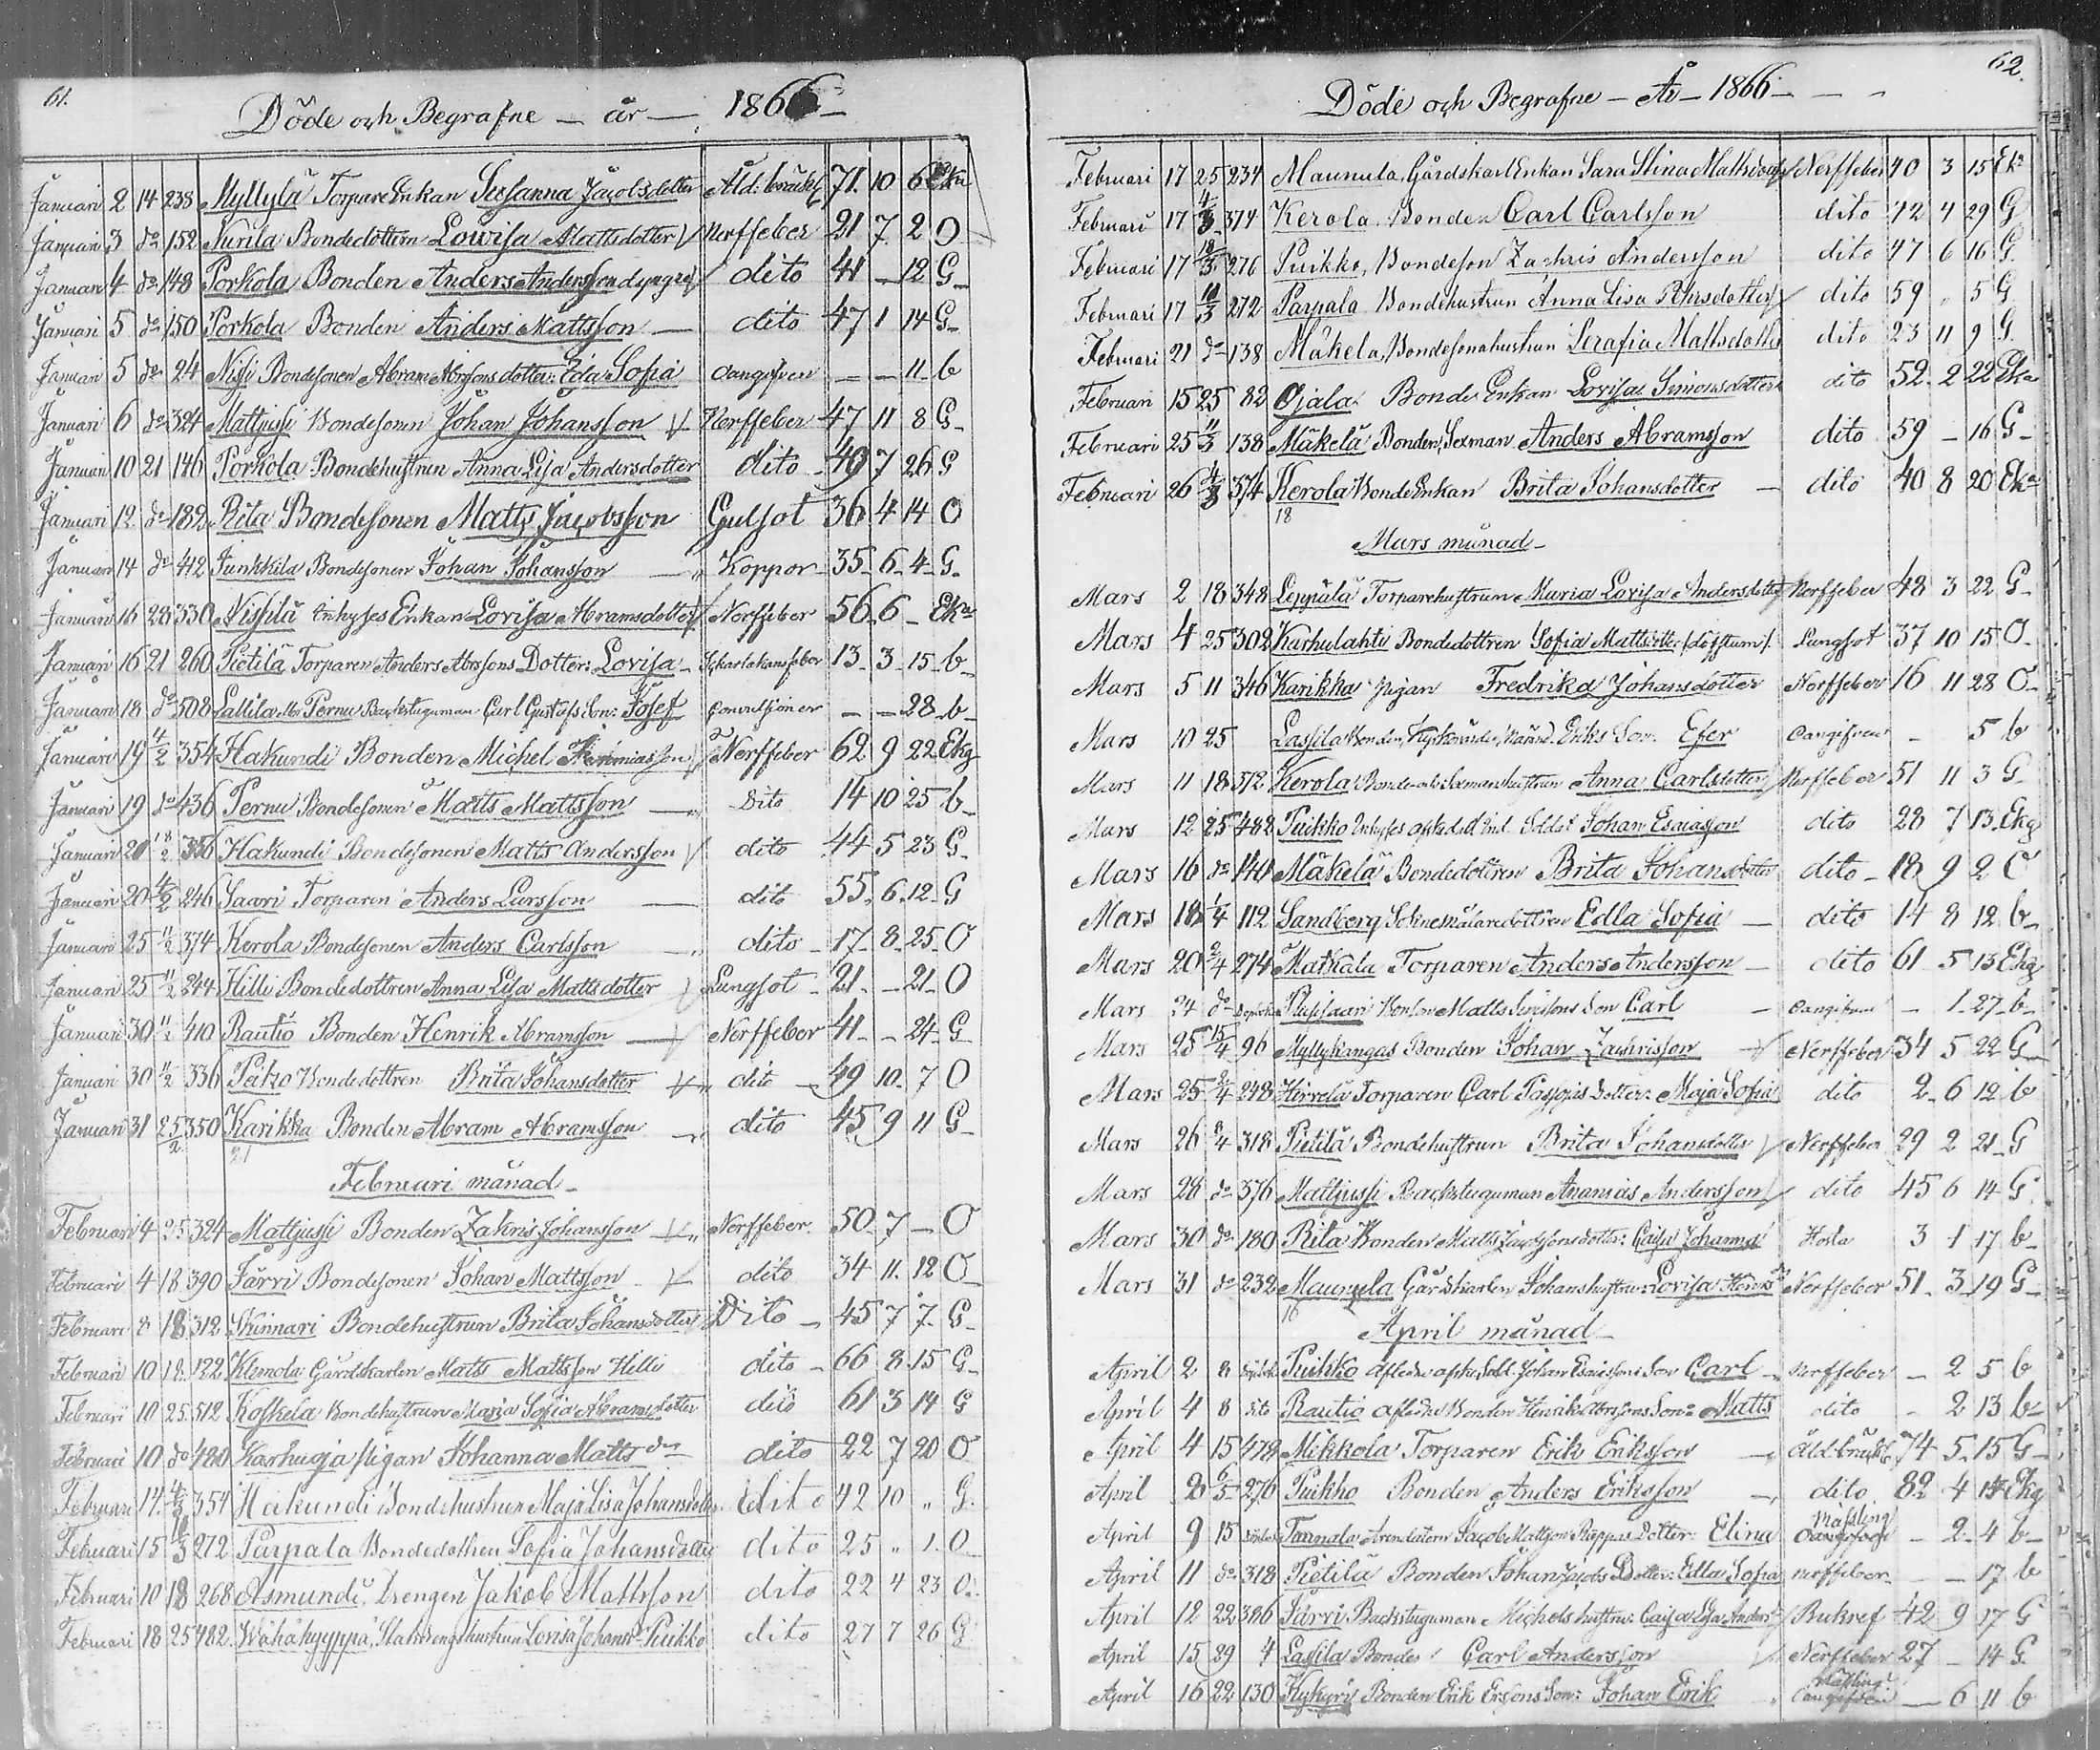 61.
Döde och Begrafne — år — 1866 —
Januari 2 14 238 Myllylä TorpareEnkan Susanna Jacobsdotter Åld.bräckl 71. 10 6 Eka
Januari 3 do 152 Nurila Bondedottren Lowisa Mattsdotter Nerffeber 21 7 2 O
Januari 4 do 148 Porkola Bonden Anders Andersson d yngre dito 41 — 12 G
Januari 5 do 150 Porkola Bonden Anders Mattsson — dito 47 1 14 G
Januari 5 do 24 Nissi Bondesonen Abram Abrssons dotter: Eda Sofia oangifven — — 11 b
Januari 6 do 324 Mattjussi Bondesonen Johan Johansson Nerffeber 47 11 8 G
Januari 10 21 146 Porkola Bondehustrun Anna Lisa Andersdotter dito 49 7 26 G
Januari 12 do 182 Rita Bondesonen Matts Jacobsson Gulsot 36 4 14 O
Januari 14 do 412 Junkkila Bondesonen Johan Johansson — Koppor 35 6 4 G
Januari 16 28 330 Nissilä Inhyses Enkan Lovisa Abramsdotter Nerffeber 56 6 — Eka
Januari 16 21 260 Pietilä Torparen Anders Abrssons Dotter: Lovisa Scharlakansfeber 13 3 15 b
Januari 18 do 508 Lallila Pernu Backstuguman Carl Gustafs Son: Josef Convultioner — — 28 b
Januari 19 4/2 354 Hakundi Bonden Michel Nerffeber 62 9 22 Ekg
Januari 19 do 436 Pernu Bondesonen Matts Mattsson — Dito 14 10 25 b
Januari 20 18/2 356 Hakundi Bondesonen Matts Andersson dito 44 5 23 G
Januari 20 4/2 246 Saari Torparen Anders Larsson — dito 55 6 12 G
Januari 25 11/2 374 Kerola Bondesonen Anders Carlsson dito 17 8 25 O
Januari 25 11/2 244 Hilli Bondedottren Anna Lisa Mattsdotter Lungsot 21 — 21 O
Januari 30 11/2 410 Rautio Bonden Henrik Abramsson — Nerffeber 41 — 24 G
Januari 30 11/2 336 Peiko Bondedottren Brita Johansdotter dito 49 10 7 O
Januari 31 25/2 350 Karikka Bonden Abram Abramsson dito 45 9 11 G
21
Februari månad
Februari 4 25 324 Mattjussi Bonden Zakris Johansson Nerffeber 50 7 — O
Februari 4 18 390 Järvi Bondesonen Johan Mattsson dito 34 11 12 O
Februari 8 18 312 Skinnari Bondehustrun Brita Johansdotter Dito 45 7 7 G
Februari 10 18 122 Klemola Gårdskarlen Matts Mattsson Hilli dito 66 8 15 G
Februari 10 25 512 Koskela Bondehustrun Maria Sofia Abramsdotter dito 61 3 14 G
Februari 10 do 480 Karhuoja Pigan Johanna Matts dr dito 22 7 20 O
Februari 14 4/3 354 Hakundi Bondehustrun Maja Lisa Johansdotter dito 42 10 „ G.
Februari 15 10/3 272 Parpala Bondedottren Sofia Johansdotter dito 25 „ 1 O
Februari 10 18 268 Asmundi, Drengen Jakob Mattsson dito 22 4 23 O.
Februari 18 25 482 Wähähyyppä, Statdrengshustrun Lovisa Johansd. Puikko dito 27 7 26 G
62.
Döde och Begrafne — År — 1866 — — —
Februari 17 25 234 Maunula, GårdskarlEnkan Sara Stina Mattsdotter Nerffeber 40 3 15 Eka
Februari 17 4/3 374 Kerola Bonden Carl Carlsson dito 42 4 29 G
Februari 17 18/3 276 Puikko, Bondeson Zachris Andersson dito 47 6 16 G.
Februari 17 10/3 272 Parpala Bondehustrun Anna Lisa Pehrsdotter dito 59 „ 5 G
Februari 21 do 138 Mäkelä, Bondesonahustrun Serafia Mattsdotter dito 23 11 9 G.
Februari 15 25 82 Ojala Bonde Enkan Lovisa Simonsdotter dito 52 2 22 Eka
Februari 25 11/3 138 Mäkelä Bonden, Sexman Anders Abramsson dito 59 — 16 G
Februari 26 4/3 374 Kerola BondeEnkan Brita Johansdotter — dito 40 8 20 Eka
18
Mars månad
Mars 2 18 348 Leppälä Torparehustrun Maria Lovisa Andersdotter Nerffeber 48 3 22 G
Mars 4 25 302 Karhulahti Bondedottren Sofia Mattsdotter (döfstum). Lungsot 37 10 15 O
Mars 5 11 346 Karikka Pigan Fredrika Johansdotter Nerffeber 16 11 28 O
Mars 10 25 Lassila Bonden, Kyrkovärden, Nämnd. Eriks Son: Efer oangifven — 5 b
Mars 11 18 372 Kerola Bonde och Sexmanshustrun Anna Carlsdotter Nerffeber 51 11 3 G
Mars 12 25 482 Puikko Inhyses afskedad Ind. Soldat Johan Esaiasson dito 28 7 13 Ekg
Mars 16 do 140 Mäkelä Bondedottren Brita Johansdotter dito 18 9 2 O
Mars 18 1/4 112 Sandberg Sokne målaredottren Edla Sofia — dito 14 8 12 b
Mars 20 2/4 274 Matkala Torparen Anders Andersson — dito 61 5 13 Ekg
Mars 24 do Matts Simssons Son Carl — oangifven — 1 27 b
Mars 25 15/4 96 Myllykangas Bonden Johan Zachrisson Nerffeber 34 5 22 G
Mars 25 2/4 248 Hirvelä Torparen Carl dotter: Maja Sofia dito 2 6 12 b
Mars 26 8/4 318 Pietilä Bondehustrun Brita Johansdotter Nerffeber 29 2 21 G
Mars 28 do 376 Mattjussi Backstuguman Ananias Andersson dito 45 6 14 G.
Mars 30 do 180 Rita Bonden Matts Jacobssons dotter: Caisa Johanna Hosta 3 1 17 b
Mars 31 do 232 Maunula Gårdskarlen Johans hustru: Lovisa Henrsdr Nerffeber 51 3 19 G
16
April månad
April 2 8 Puikko Afledne afsk. Sold. Johan Esaiassons Son Carl Nerffeber — 2 5 b
April 4 8 dito Rautio Afledne Bonden Henrik Abrssons Son: Matts dito — 2 13 b
April 4 15 478 Mikkola Torparen Erik Eriksson — Åld.bräckl. 74 5 15 G
April 8 6/5 276 Puikko Bonden Anders Eriksson — dito 82 4 14 Ekg
April 9 15 Tannala Arendatorn Jacob Mattsson Rappas Dotter: Elina Mässling oangifven — 2 4 b
April 11 do 318 Pietilä Bonden Johan Jacobs Dotter: Edla Sofia nerffeber — — 17 b
April 12 22 386 Järvi Backstuguman Michels hustru: Caisa Lisa Andersdr Bukref 42 9 17 G
April 15 29 4 Lassila Bonden Carl Andersson Nerffeber 27 — 14 G.
April 16 22 130 Kykyri Bonden Erik Ersons Son: Johan Erik Mässling oangifven — 6 11 b